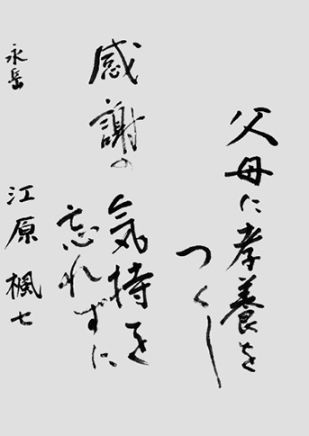 父母に孝養を
つくし
感謝の
気持を
忘れずに
永岳
江原楓七